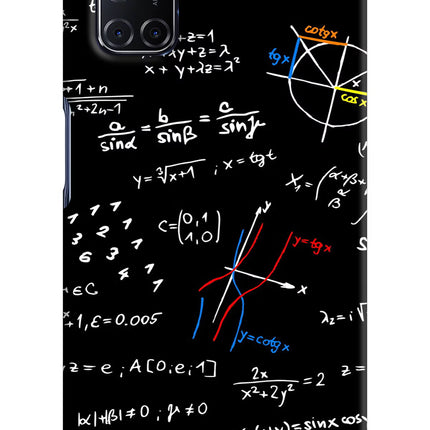 +z=1
+λy+z=λ
x+y+λz=λ²
cotgx
tgx
x
cosx
+1+n
n²+2n-1
a/sinα = b/sinβ = c/sinγ
y=∛(x+1) ; x=tgt
X₁=(α+β+
α
β
1 1 1
3 2 1
6 3 1
4 1
1
C=(0,1
1,0)
y
y=tgx
x
+EC
+1, ε=0.005
y=cotgx
λ₂=i√
z=e ; A[0;e;1]
2x/(x²+2y²) =2
z=
|α|+|β|≠0 ; γ≠0
=sinx cos